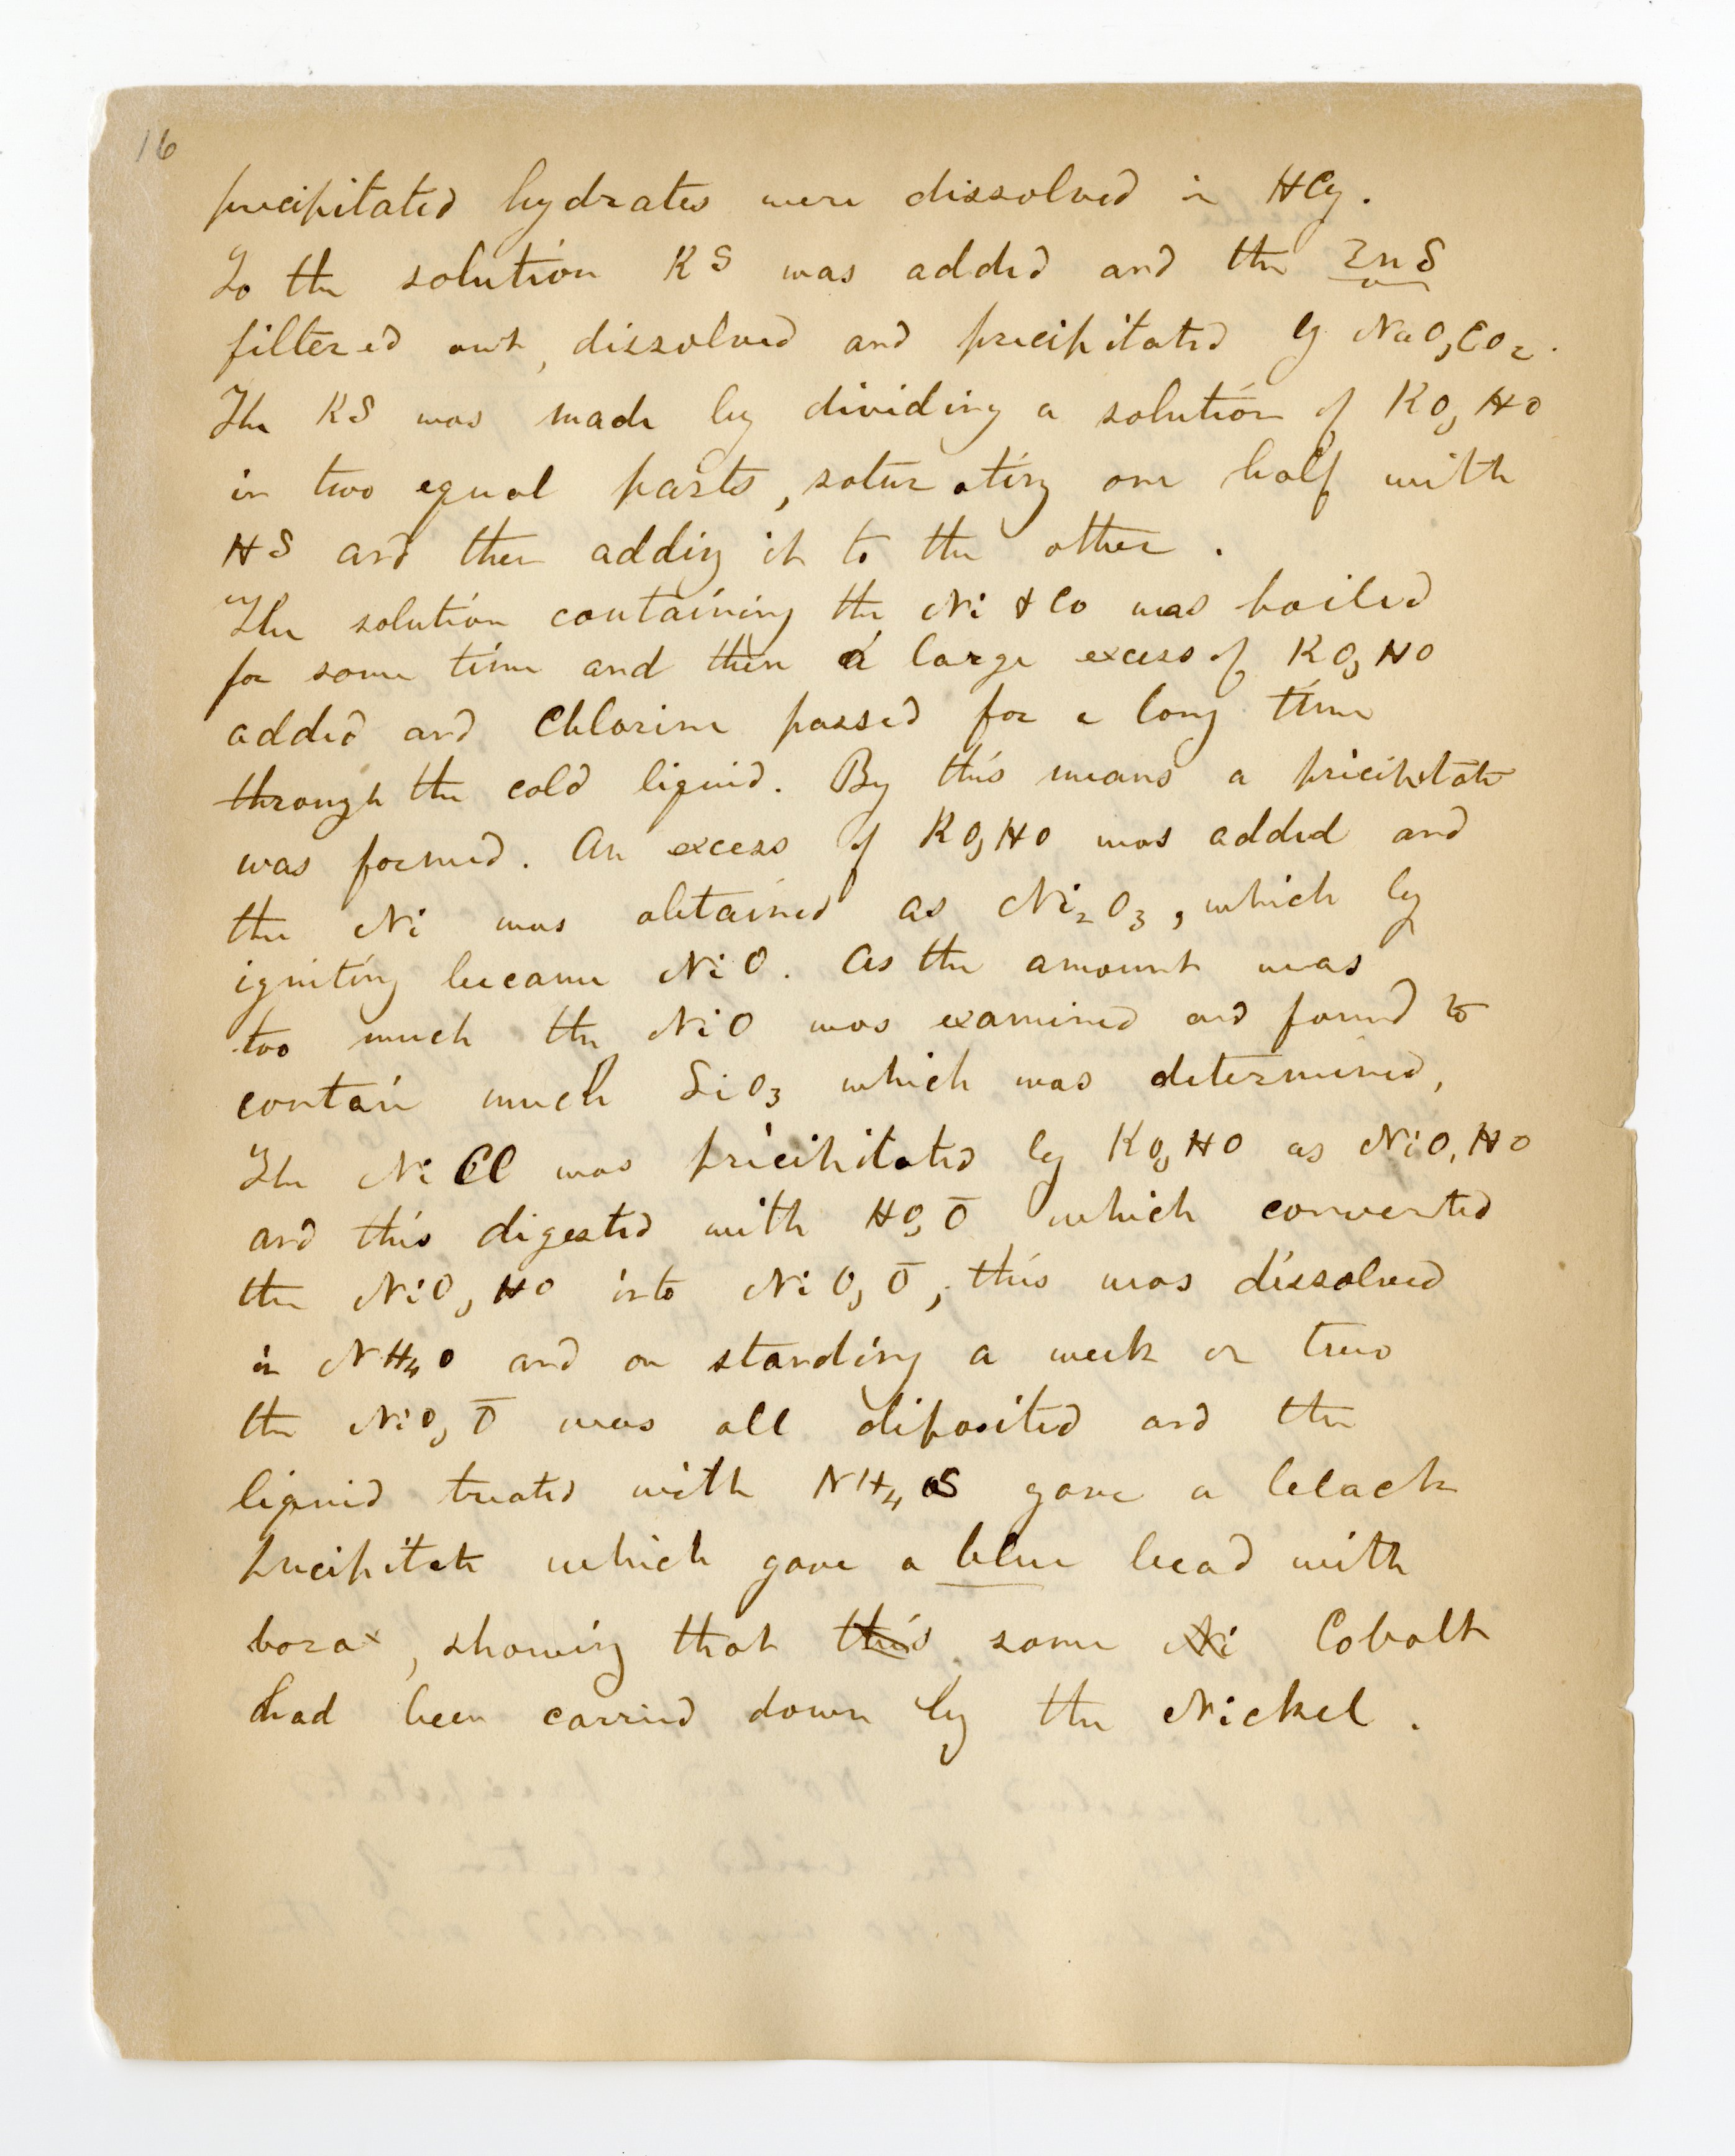 16
precipitated hydrates were dissolved in HCy.
To the solution KS was added and the ZnS
filtered out, dissolved and precipitated by NaO,CO₂.
The KS was made by dividing a solution of KO,HO
in two equal parts, saturating one half with
HS and then adding it to the other.
The solution containing the Ni & Co was boiled
for some time and then a large excess of KO,HO
added and Chlorine passed for a long time
through the cold liquid. By this means a precipitate
was formed. An excess of KO,HO was added and
the Ni was obtained as Ni₂O₃, which by
igniting became NiO. As the amount was
too much the NiO was examined and found to
contain much SiO₃ which was determined,
The NiCl was precipitated by KO,HO as NiO,HO
and this digested with HO,Ō which converted
the NiO,HO into NiO,Ō, this was dissolved
in NH₄O and on standing a week or two
the NiO,Ō was all deposited and the
liquid treated with NH₄S gave a black
precipitate which gave a blue bead with
borax, showing that this some Ni Cobalt
had been carried down by the Nickel.